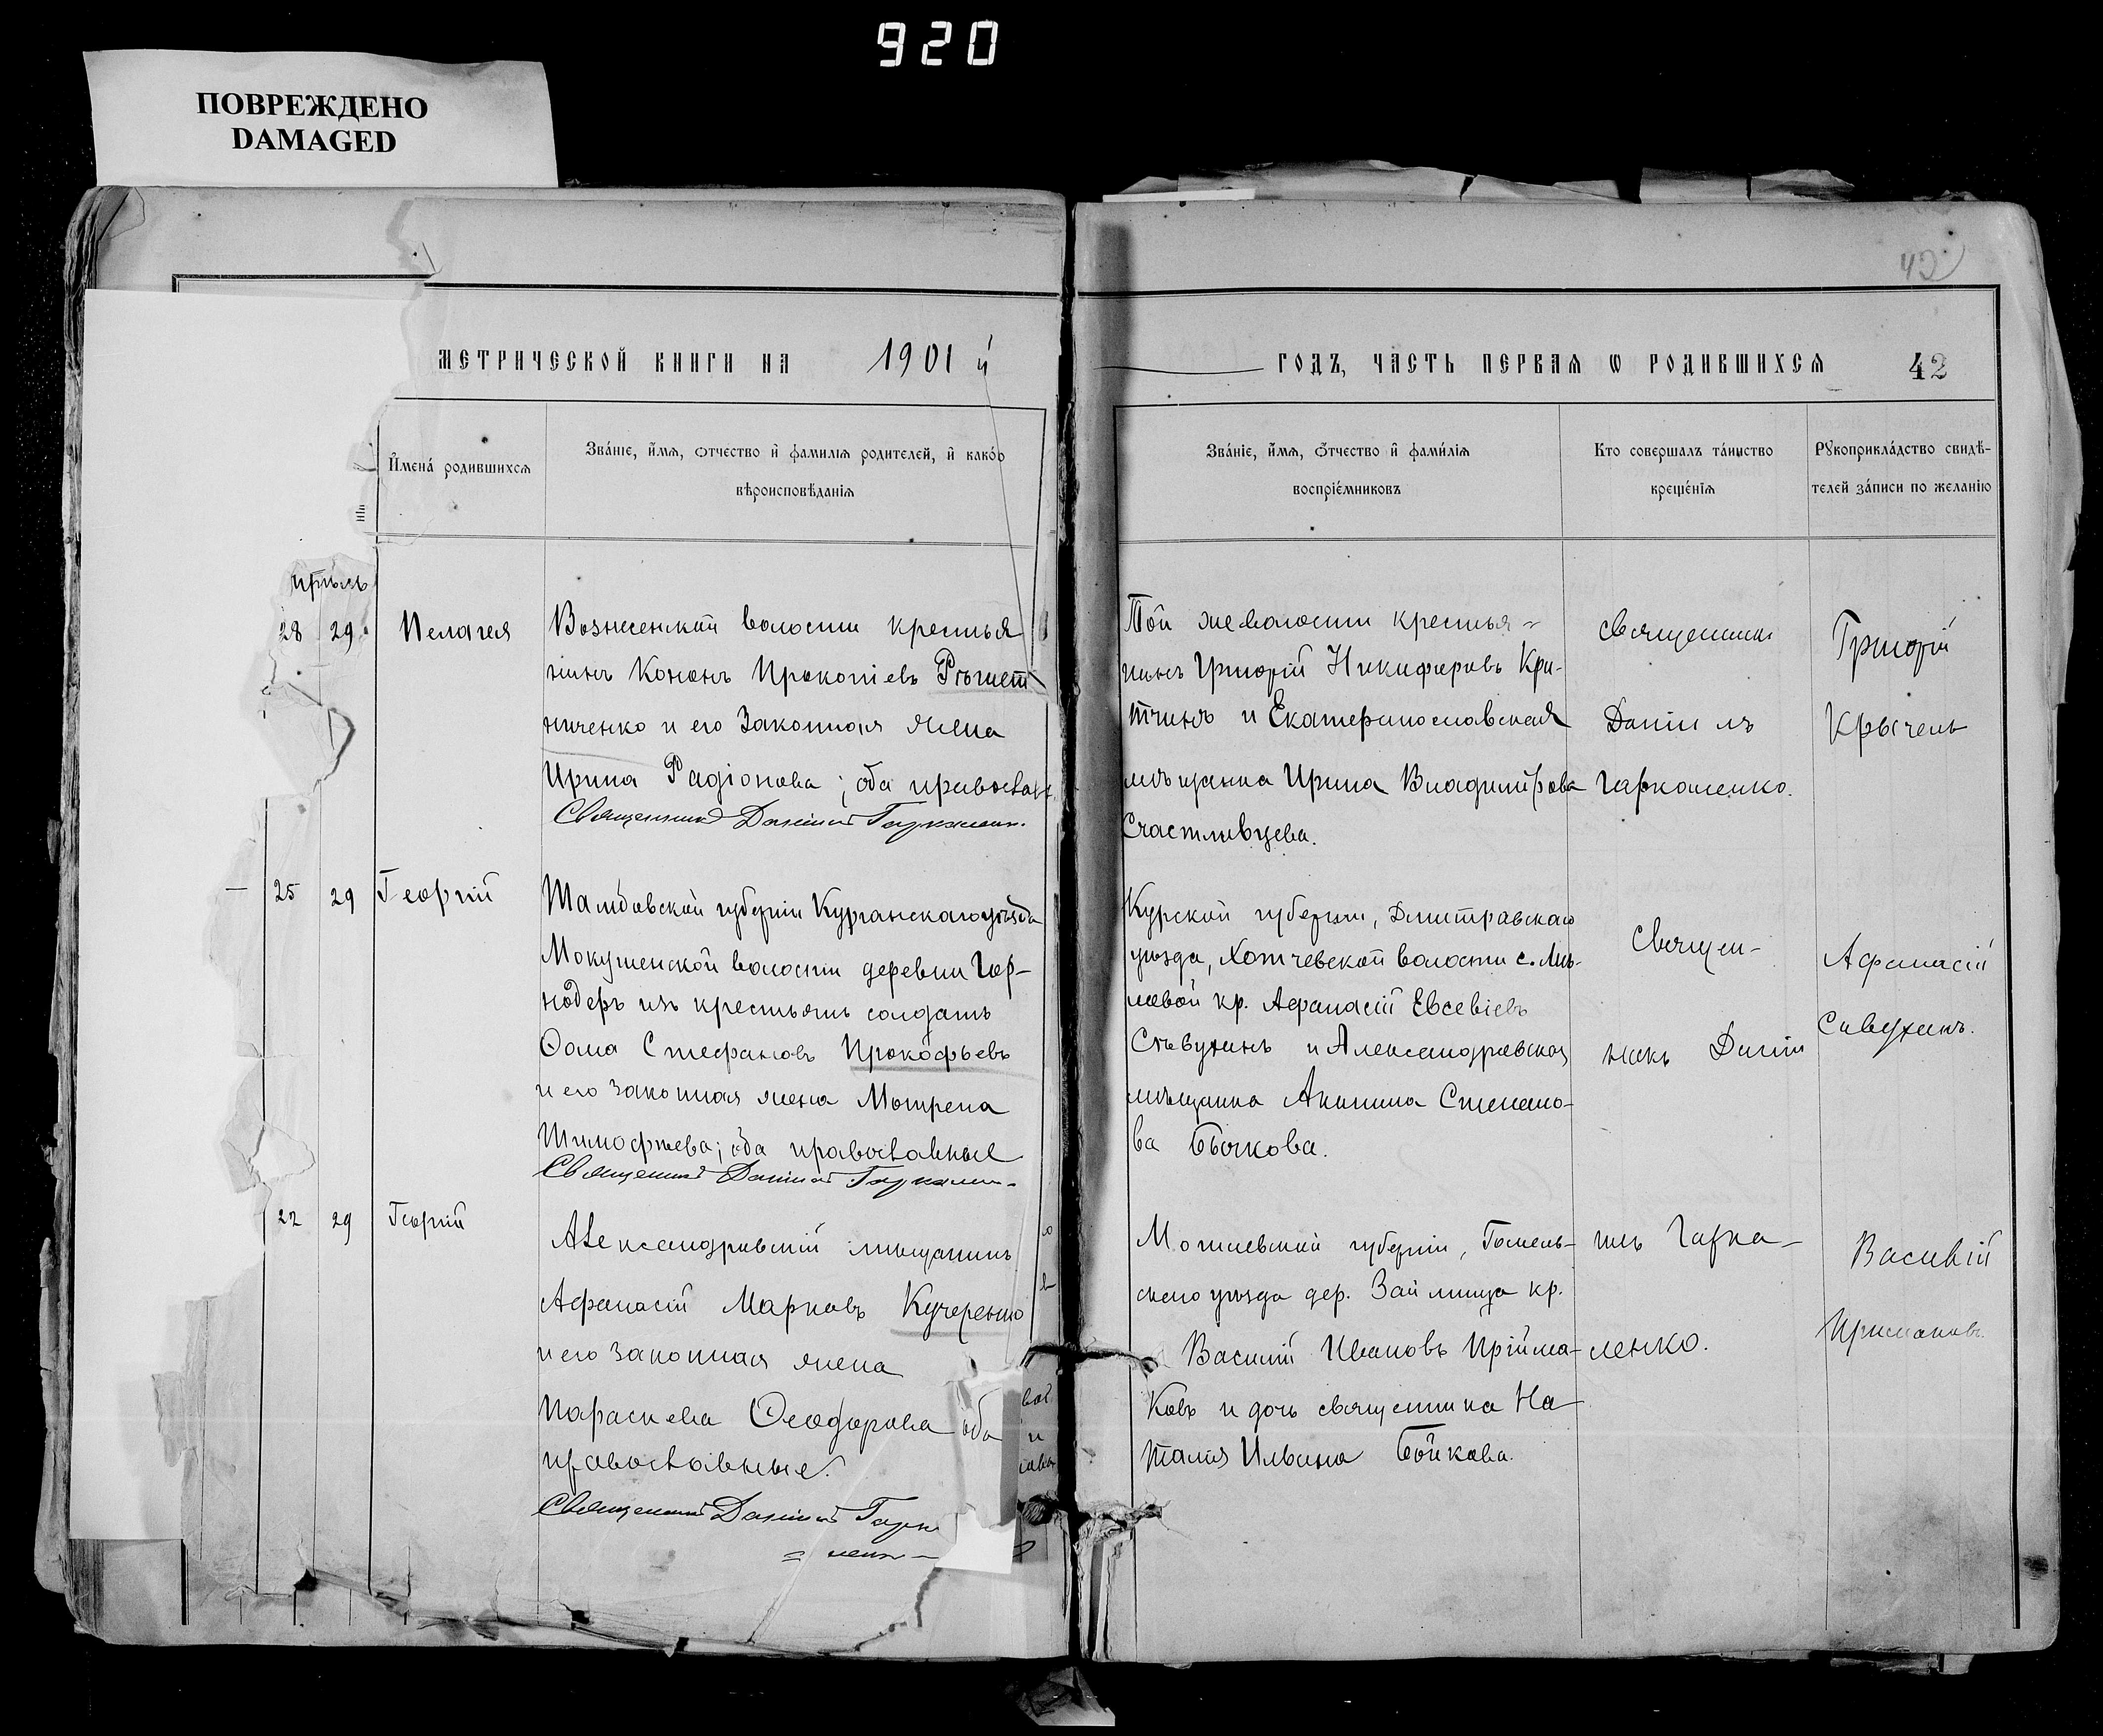 920
ПОВРЕЖДЕНО
DAMAGED
42
МЕТРИЧЕСКОЙ КНИГИ НА 1901 й
ГОДЪ, ЧАСТЬ ПЕРВАЯ Ѡ РОДИВШИХСЯ 42
Имена́ родившихся
Зва́ніе, и́мя, ѻтчество и фамилія родителей, и како́го
вѣроисповѣданія
Зва́ніе, и́мя, ѻтчество и фами́лія
воспріе́мниковъ
Кто совершалъ та́инство
креще́нія
Рꙋкоприкла́дство свидѣ-
телей за́писи по желанію
28 29 Пелагея
Вознесенской волости крестья
нинъ Кононъ Прокопіевъ
ниченко и его законная жена
Ирина Радіонова; оба православн.
Священникъ Даніилъ Гаркаленк.
Той же волости крестья=
нинъ Григорій Никифоровъ Кри-
тчинъ и Екатеринославская
мѣщанка Ирина Владимірова
Счастливцева.
Священникъ
Даніилъ
Гаркаленко.
Григорій
25 29 Георгій
Тамбовской губерніи уѣзда
Мокушенской волости деревни Гор-
изъ крестьянъ солдатъ
Ѳома Стефановъ Прокофьевъ
и его законная жена Мотрена
Тимофѣева; оба православные
Священникъ Даніилъ Гаркален-
Курской губерніи, Дмитравскаго
уѣзда, Хотчевской волости с.
кр. Афанасій Евсевіевъ
и Александравская
мѣщанка Акилина Степано-
ва Бычкова.
Священ-
никъ Даніи
Афанасій
22 29 Георгій
Александравскій мѣщанинъ
Афанасій Марковъ Кучеренко
и его законная жена
Параскева Ѳеодорова оба
православные.
Священникъ Даніилъ Гарка
= ленк -
Могилевской губерніи, Гомель-
скаго уѣзда дер. Займища кр.
Василій Ивановъ Прійма-
ковъ и дочь священника На
талія Ильина Бойкова.
илъ Гарка-
ленко.
Василій
Примаковъ.